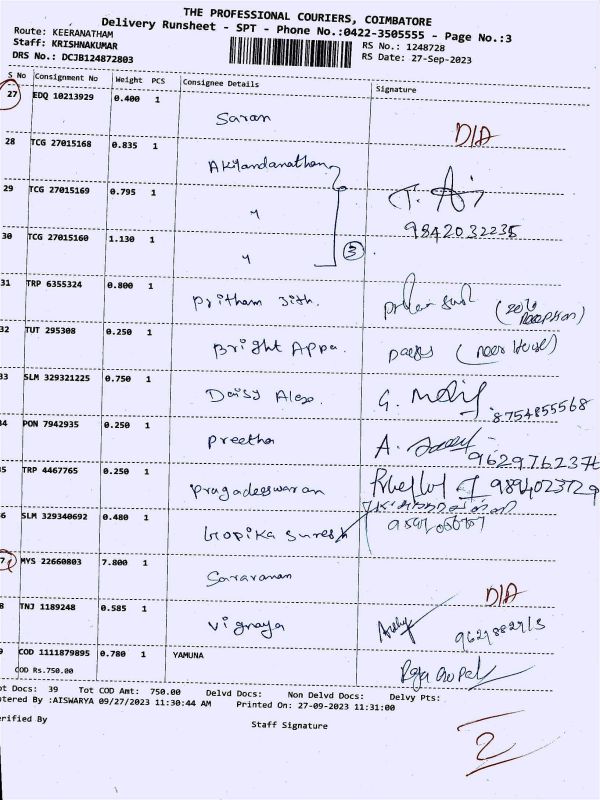 THE PROFESSIONAL COURIERS, COIMBATORE
Delivery Runsheet - SPT - Phone No.:0422-3505555 - Page No.:3
Route: KEERANATHAM
Staff: KRISHNAKUMAR
RS No.: 1248728
DRS No.: DCJB124872803
RS Date: 27-Sep-2023
S No Consignment No Weight PCS Consignee Details Signature
27 EDQ 10213929 0.400 1
Saran D/A
28 TCG 27015168 0.835 1
Akilandanathan
29 TCG 27015169 0.795 1
〃
9842032235
30 TCG 27015160 1.130 1
〃 3
31 TRP 6355324 0.800 1
Pritham Jith.
32 TUT 295308 0.250 1
Bright Appa. (near House)
33 SLM 329321225 0.750 1
Daisy Alex G.
8754855568
34 PON 7942935 0.250 1
Preetha A.
9629762376
35 TRP 4467765 0.250 1
Pragadeeswaran 9894023729
36 SLM 329340692 0.480 1
Gopika Suresh
37 MYS 22660803 7.800 1
Saravanan D/A
38 TNJ 1189248 0.585 1
Vignaya
39 COD 1111879895 0.780 1 YAMUNA
COD Rs.750.00 Raja Gopal
Tot Docs: 39 Tot COD Amt: 750.00 Delvd Docs: Non Delvd Docs: Delvy Pts:
Entered By :AISWARYA 09/27/2023 11:30:44 AM Printed On: 27-09-2023 11:31:00
Verified By Staff Signature
2